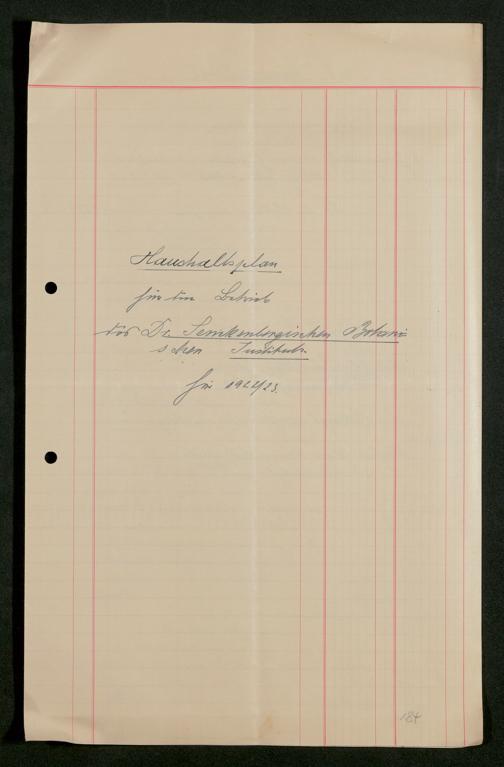 Haushaltsplan
für den Betrieb
des Dr. Senckenbergischen Botani-
schen Instituts
für 1922/23.
184